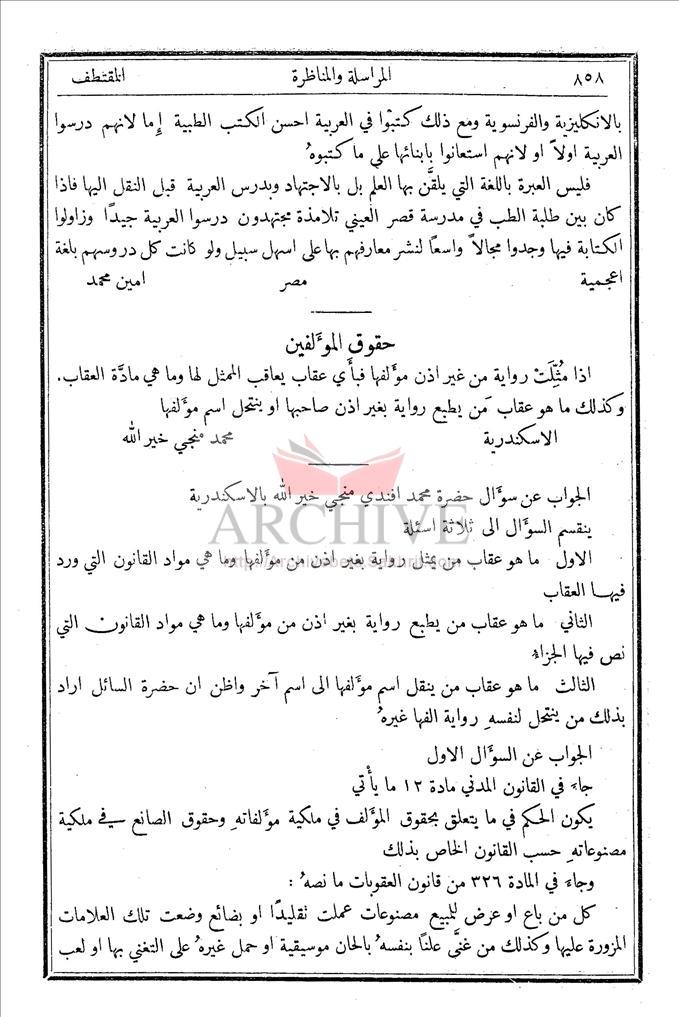 ٨٥٨ المراسلة والمناظرة المقتطف
بالانكليزية والفرنسوية ومع ذلك كتبوا في العربية احسن الكتب الطبية إما لانهم درسوا
العربية اولاً او لانهم استعانوا بابنائها على ما كتبوهُ
فليس العبرة باللغة التي يلقَّن بها العلم بل بالاجتهاد وبدرس العربية قبل النقل اليها فاذا
كان بين طلبة الطب في مدرسة قصر العيني تلامذة مجتهدون درسوا العربية جيدًا وزاولوا
الكتابة فيها وجدوا مجالاً واسعًا لنشر معارفهم بها على اسهل سبيل ولو كانت كل دروسهم بلغة
اعجمية مصر امين محمد
حقوق المؤَلفين
اذا مُثِّلَتْ رواية من غير اذن مؤَلفها فبأَي عقاب يعاقب الممثل لها وما هي مادَّة العقاب.
وكذلك ما هو عقاب مَن يطبع رواية بغير اذن صاحبها او ينتحل اسم مؤَلفها
الاسكندرية محمد منجي خير الله
الجواب عن سوؤَال حضرة محمد افندي منجي خير الله بالاسكندرية
ARCHIVE
ينقسم السوؤَال الى ثلاثة اسئلة
الاول ما هو عقاب من يمثل رواية بغير اذن من مؤَلفها وما هي مواد القانون التي ورد
فيها العقاب
الثاني ما هو عقاب من يطبع رواية بغير اذن من مؤَلفها وما هي مواد القانون التي
نص فيها الجزاء
الثالث ما هو عقاب من ينقل اسم مؤَلفها الى اسم آخر واظن ان حضرة السائل اراد
بذلك من ينتحل لنفسهِ رواية الفها غيرهُ
الجواب عن السوؤَال الاول
جاء في القانون المدني مادة ١٢ ما يأْتي
يكون الحكم في ما يتعلق بحقوق المؤَلف في ملكية مؤَلفاتهِ وحقوق الصانع في ملكية
مصنوعاتهِ حسب القانون الخاص بذلك
وجاء في المادة ٣٢٦ من قانون العقوبات ما نصهُ :
كل من باع او عرض للمبيع مصنوعات عملت تقليدًا او بضائع وضعت تلك العلامات
المزورة عليها وكذلك من غنَّى علنًا بنفسهُ بالحان موسيقية او حمل غيرهُ على التغني بها او لعب